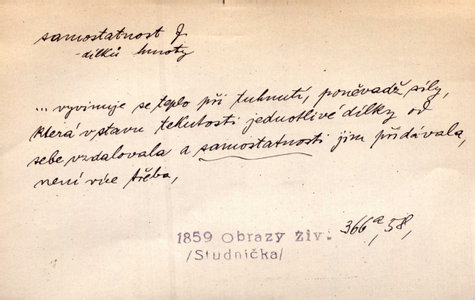 samostatnost f
-dílků hmoty
... vyvinuje se teplo při tuhnutí, poněvadž síly,
která v stavu tekutosti jednotlivé dílky od
sebe vzdalovala a samostatnosti jim přidávala,
není více třeba,
1859 Obrazy Živ.
/Studnička/
366a, 58,